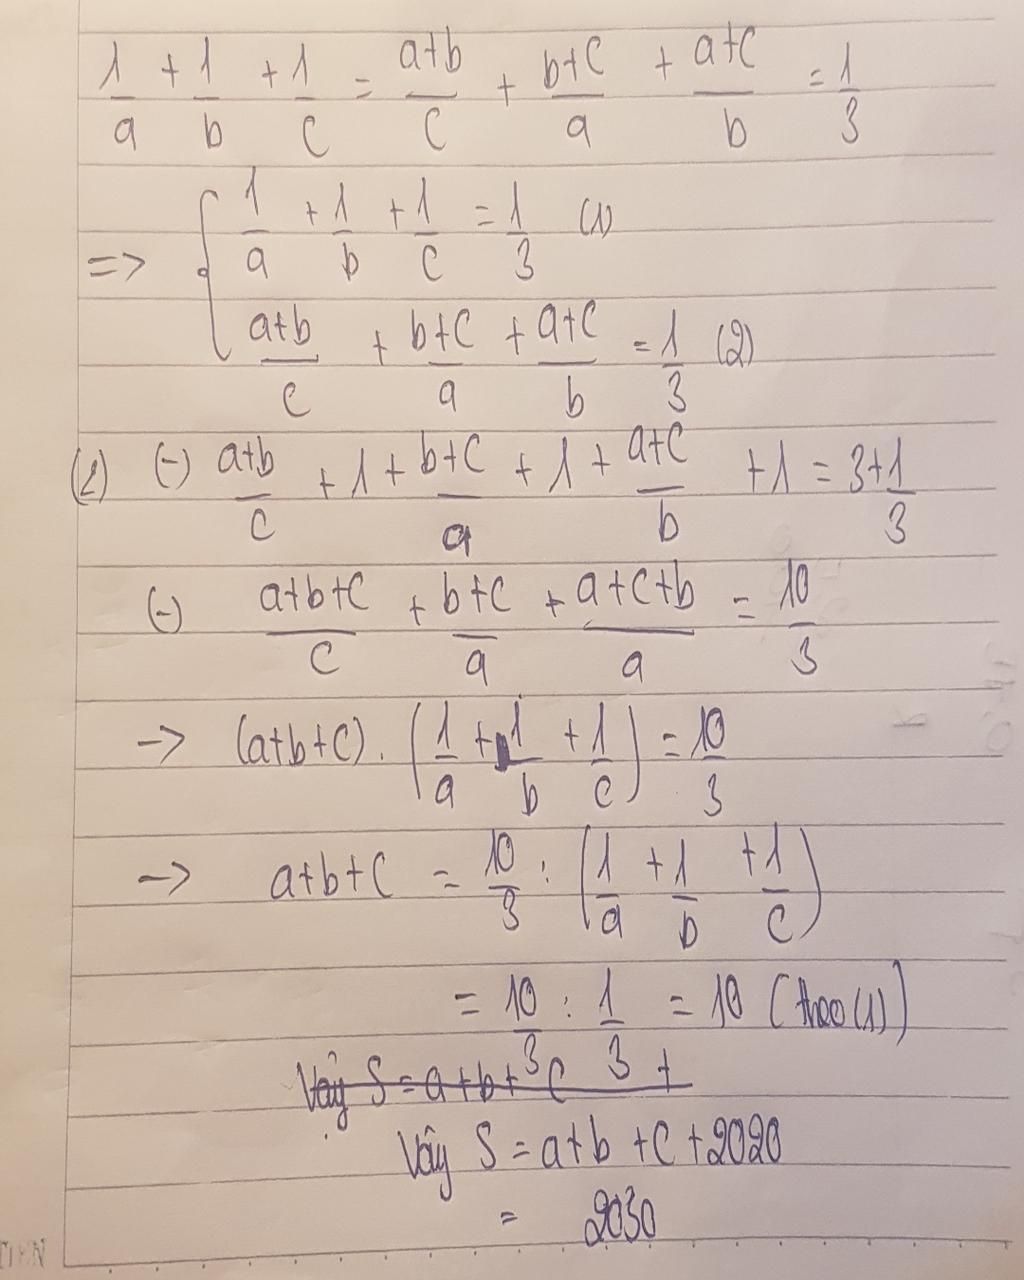 1/a + 1/b + 1/c = a+b/c + b+c/a + a+c/b = 1/3
=> { 1/a + 1/b + 1/c = 1/3 (1)
a+b/c + b+c/a + a+c/b = 1/3 (2)
(2) (-) a+b/c + 1 + b+c/a + 1 + a+c/b + 1 = 3+1/3
(-) a+b+c/c + b+c/a + a+c+b/a = 10/3
-> (a+b+c) . (1/a + 1/b + 1/c) = 10/3
-> a+b+c = 10/3 : (1/a + 1/b + 1/c)
= 10/3 : 1/3 = 10 (theo (1))
Vậy S = a+b+c +
Vậy S = a+b+c+2020
= 2030